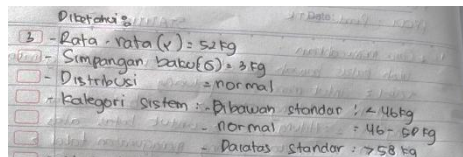 Diketahui :
3 - Rata-rata (x) = 52 kg
- Simpangan baku (σ) = 3 kg
- Distribusi = normal
- Kategori sistem : - Dibawah standar : < 46 kg
- normal = 46 - 58 kg
- Daiatas standar : > 58 kg